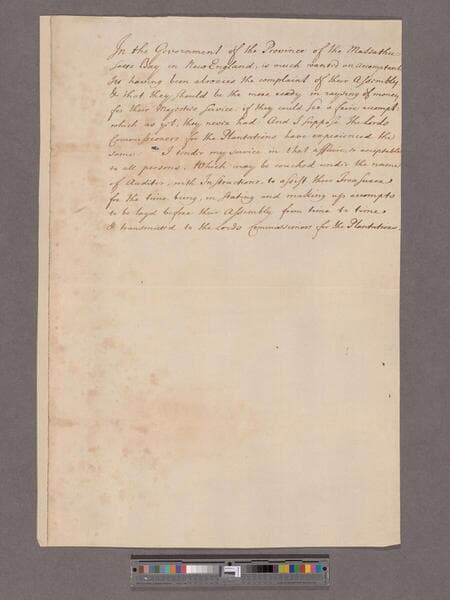 In the Government of the Province of the Massathu
setts Bay in New England, is much wanted an Accomptant
It having been alwayes the complaint of their Assembly
& that they should be the more ready in raysing of money
for their Majesties service if they could see a faire accompt
which as yet, they never had And I suppose the Lords
Commissioners for the Plantations have experienced the
same. I tender my service in that affaire, so acceptable
to all persons. Which may be vouched under the name
of Auditor, with Instructions, to assist their Treasurer
for the time being, in stating and making up accompts
to be layd before their Assembly from time to time
& transmitted to the Lords Commissioners for the Plantations.